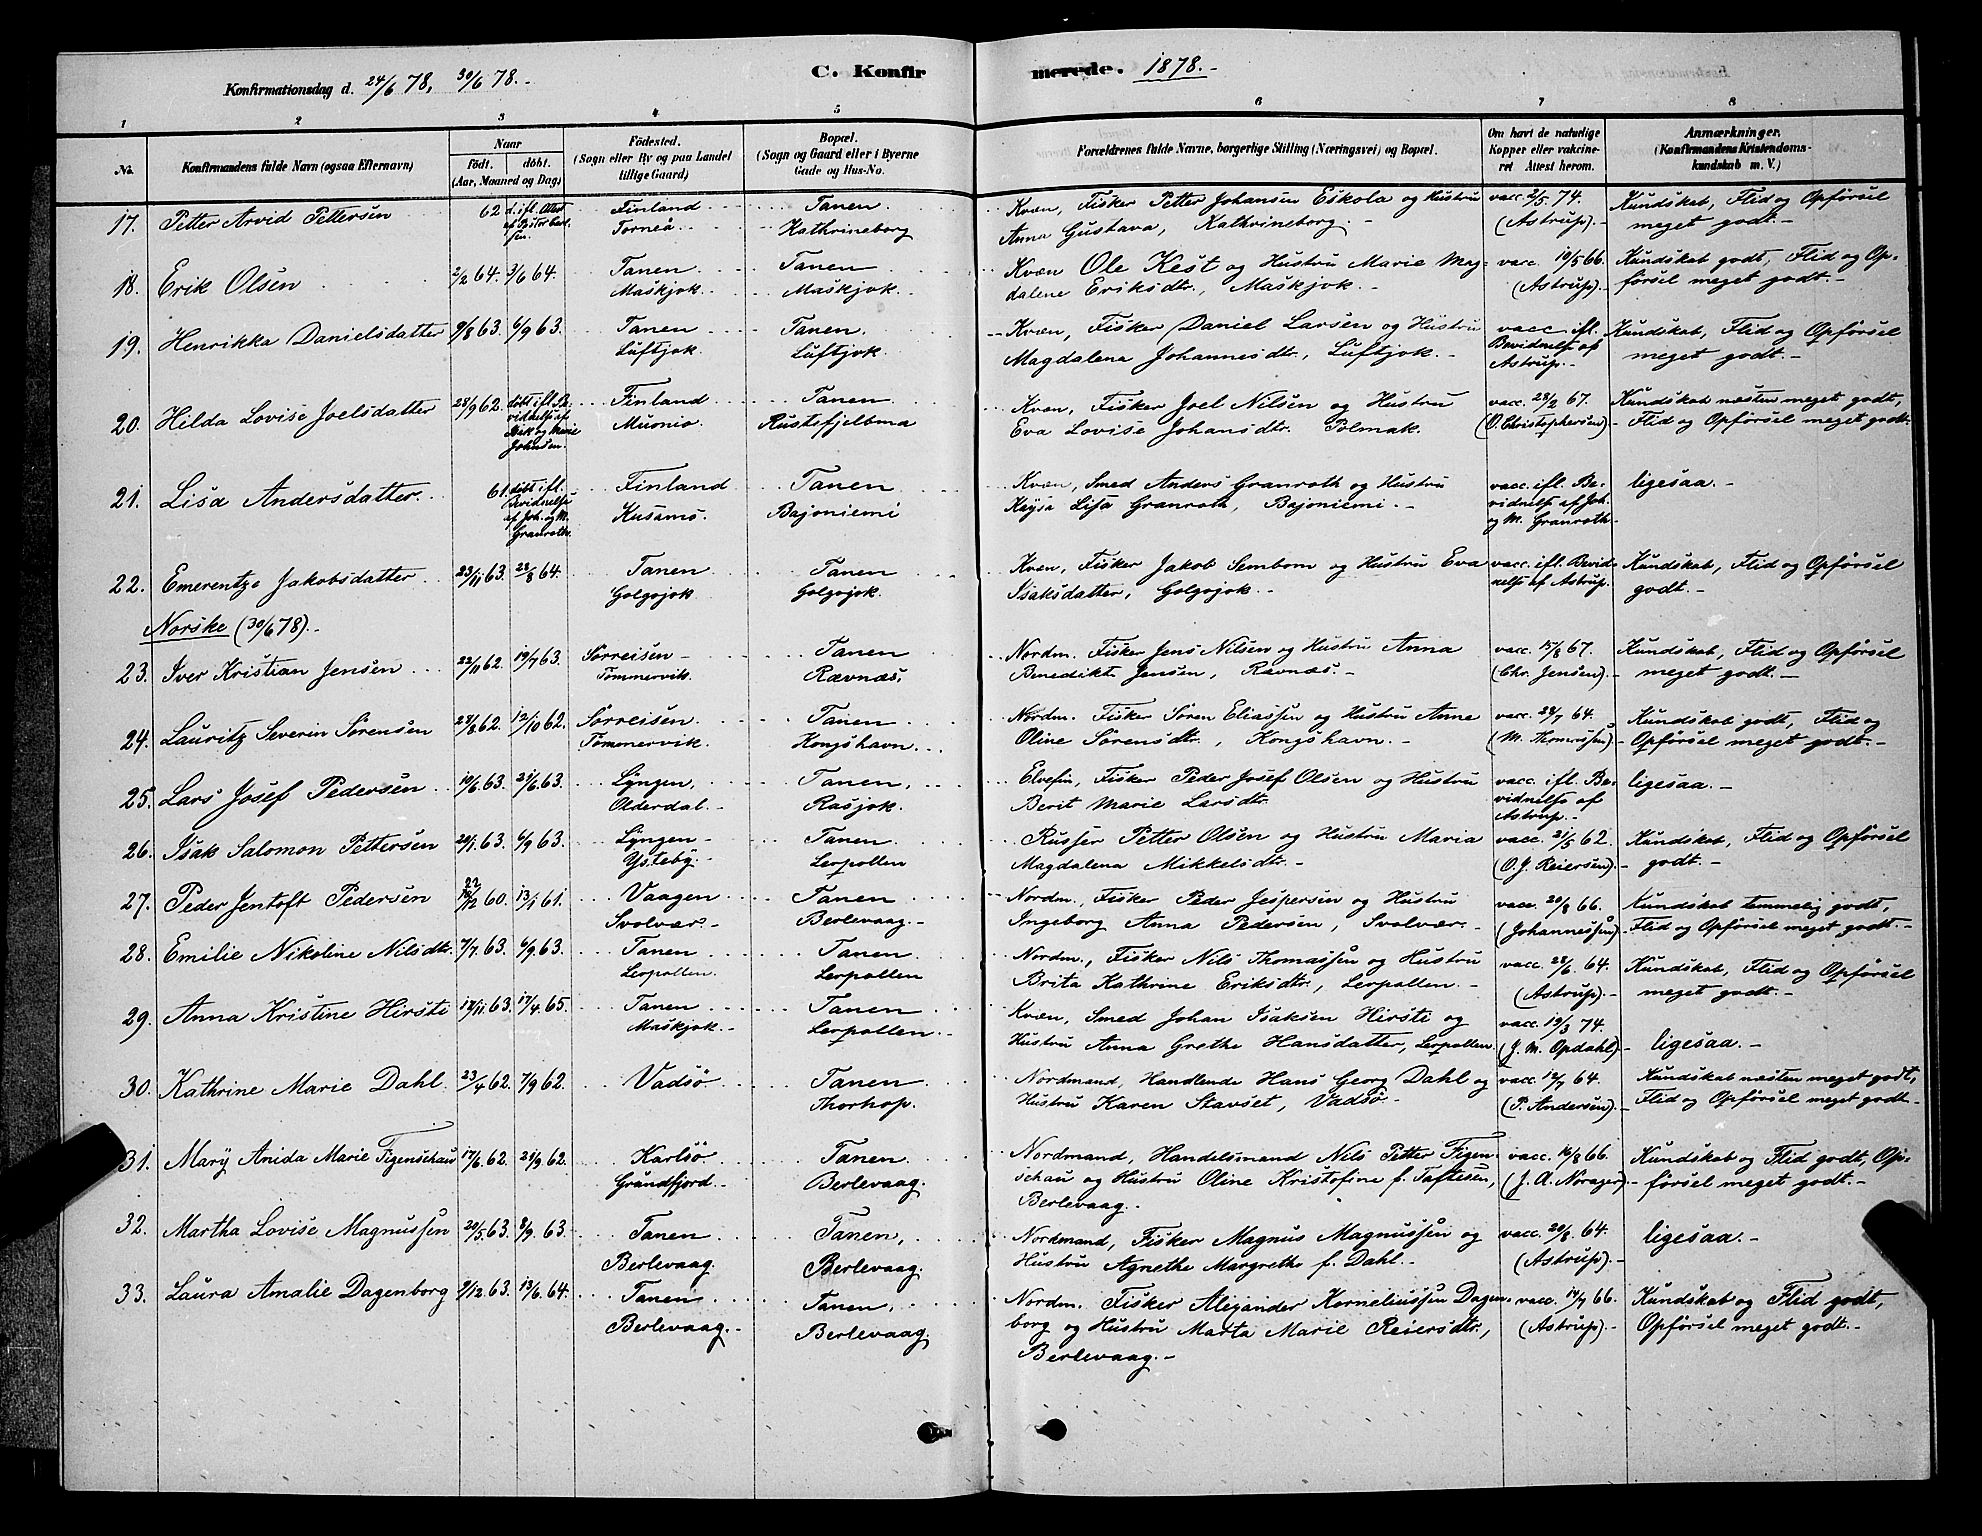 Konfirmationsdag d. 24/6 78, 30/6 78.-
C. Konfirmerede. 1878.-
1 2 3 4 5 6 7 8
No. Konfirmandens fulde Navn (ogsaa Efternavn)
Naar
Födt. döbt.
(Aar, Maaned og Dag)
Födested.
(Sogn eller By og paa Landet
tillige Gaard)
Bopæl.
(Sogn og Gaard eller i Byerne
Gade og Hus-No.
Forældrenes fulde Navne, borgerlige Stilling (Næringsvei) og Bopæl.
Om havt de naturlige
Kopper eller vakcineret
Attest herom.
Anmærkninger.
(Konfirmandens Kristendomskundskab
m. V.)
17. Petter Arvid Pettersen 62 d. ifl. Attest Finland Tanen Kvæn, Fisker Petter Johansen Eskola og Hustru vacc. 2/5 74. Kundskab, Flid og Opførsel
Torneå.- Kathrineborg Anna Gustava, Kathrineborg.- (Astrup).- meget godt.-
18. Erik Olsen 2/2 64. 3/6 64. Tanen Tanen Kvæn Ole Kest og Hustru Marie Mag- vacc. 19/5 66. Kundskab godt, Flid og Op-
Maskjok.- Maskjok.- dalene Eriksdtr., Maskjok.- (Astrup).- førsel meget godt.-
19. Henrikka Danielsdatter 9/8 63. 6/9 63. Tanen Tanen. Kvæn, Fisker Daniel Larsen og Hustru vacc. ifl. Kundskab, Flid og Opførsel
Luftjok. Luftjok. Magdalena Johannesdtr., Luftjok.- Bevidnelse af Astrup.- meget godt.-
20. Hilda Lovise Joelsdatter 28/9 62. døbt ifl. Be- Finland Tanen Kvæn, Fisker Joel Nilsen og Hustru vacc. 28/2 67. Kundskab næsten meget godt,
vidnelse af Muonio. Rustefjelbma Eva Lovise Johansdtr. Polmak. (O. Christophersen).- Flid og Opførsel meget godt.-
Johnsen.
21. Lisa Andersdatter 61. døbt ifl. Finland Tanen Kvæn, Smed Anders Granroth og Hustru vacc. ifl. Be- ligesaa.-
Bevidnelse Kusamo. Bajoniemi Kaysa Lisa Granroth, Bajoniemi.- vidnelse af Joh.
af Joh. og M. Granroth. og M. Granroth.-
22. Emerentze Jakobsdatter 23/11 63. 28/8 64. Tanen Tanen Kvæn, Fisker Jakob Sembom og Hustru Eva vacc. ifl. Bevid- Kundskab, Flid og Opførsel
Golgojok Golgojok. Isaksdatter, Golgojok.- nelse af Astrup. godt.-
Norske (30/6 78).-
23. Iver Kristian Jensen 22/11 62. 19/7 63. Sørreisen- Tanen Nordm. Fisker Jens Nilsen og Hustru Anna vacc. 15/8 67. Kundskab, Flid og Opførsel
Tømmervik. Rævnæs, Benedikte Jensen, Rævnæs.- (Chr. Jensen).- meget godt.-
24. Lauritz Severin Sørensen 28/8 62. 12/10 62. Sørreisen. Tanen Nordm. Fisker Søren Eliassen og Hustru Anne vacc. 28/7 64. Kundskab godt, Flid og
Tømmervik. Kongshavn. Oline Sørensdtr., Kongshavn.- (M. Thomassen).- Opførsel meget godt.-
25. Lars Josef Pedersen 10/6 63. 21/6 63. Lyngen, Tanen, Elvefin, Fisker Peder Josef Olsen og Hustru vacc. ifl. Be- ligesaa.-
Olderdal.- Rasjok. Berit Marie Larsdtr. vidnelse af Astrup.-
26. Isak Salomon Pettersen 20/1 63. 6/9 63. Lyngen- Tanen Russer Petter Olsen og Hustru Maria vacc. 21/5 62. Kundskab, Flid og Opførsel
Ysteby. Lerpollen Magdalena Mikkelsdtr.- (O. J. Reiersen).- godt.-
27. Peder Jentoft Pedersen 22/12 60. 13/1 61. Vaagen Tanen Nordm., Fisker Peder Jespersen og Hustru vacc. 20/8 66. Kundskab temmelig godt,
Svolvær.- Berlevaag.- Ingeborg Anna Pedersen, Svolvær.- (Johannessen).- Flid og Opførsel meget godt.-
28. Emilie Nikoline Nilsdtr. 7/7 63. 6/9 63. Tanen Tanen Nordm., Fisker Nils Thomassen og Hustru vacc. 28/6 64. Kundskab, Flid og Opførsel
Lerpollen. Lerpollen Brita Kathrine Eriksdtr., Lerpollen.- (Astrup).- meget godt.-
29. Anna Kristine Hirsti 17/11 63. 17/4 65. Tanen Tanen Kvæn, Smed Johan Isaksen Hirsti og vacc. 19/3 74. ligesaa.-
Maskjok.- Lerpollen. Hustru Anna Grethe Hansdatter, Lerpollen. (J. M. Opdahl).-
30. Kathrine Marie Dahl. 23/4 62. 7/9 62. Vadsø Tanen Nordmand, Handlende Hans Georg Dahl og vacc. 12/7 64. Kundskab næsten meget godt,
Thorhop. Hustru Karen Stavset, Vadsø.- (P. Andersen).- Flid og Opførsel meget godt.-
31. Mary Anida Marie Figenschau 17/6 62. 21/9 62. Karlsø. Tanen. Nordmand, Handelsmand Nils Petter Figen- vacc. 16/8 66. Kundskab og Flid godt, Op-
Grundfjord. Berlevaag. schau og Hustru Oline Kristofine f. Taftesen, (J. A. Norager).- førsel meget godt.-
Berlevaag.-
32. Martha Lovise Magnussen 20/5 63. 8/9 63. Tanen Tanen, Nordmand, Fisker Magnus Magnussen og vacc. 20/8 64. ligesaa.-
Berlevaag. Berlevaag. Hustru Agnethe Margrethe f. Dahl.- (Astrup).-
33. Laura Amalie Dagenborg 9/12 63. 13/6 64. Tanen Tanen, Nordm. Fisker Alexander Korneliussen Dagen- vacc. 19/7 66. Kundskab og Flid godt,
Berlevaag.- Berlevaag. borg og Hustru Marta Marie Reiersdtr., (Astrup).- Opførsel meget godt.-
Berlevaag.-